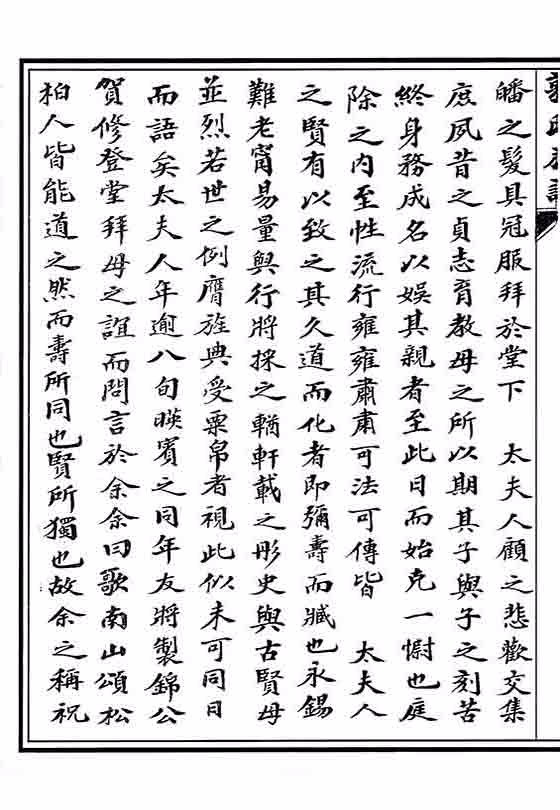 皤之髮具冠服拜於堂下　太夫人顧之悲歡交集
庶夙昔之貞志育教母之所以期其子與子之刻苦
終身務成名以娛其親者至此日而始克一慰也庭
除之內至性流行雍雍肅肅可法可傳皆　太夫人
之賢有以致之其久道而化者即彌壽而臧也永錫
難老甯易量與行將採之輶軒載之彤史與古賢母
並烈若世之例膺旌典受粟帛者視此似未可同日
而語矣太夫人年逾八旬暎賓之同年友將製錦公
賀修登堂拜母之誼而問言於余余曰歌南山頌松
柏人皆能道之然而壽所同也賢所獨也故余之稱祝